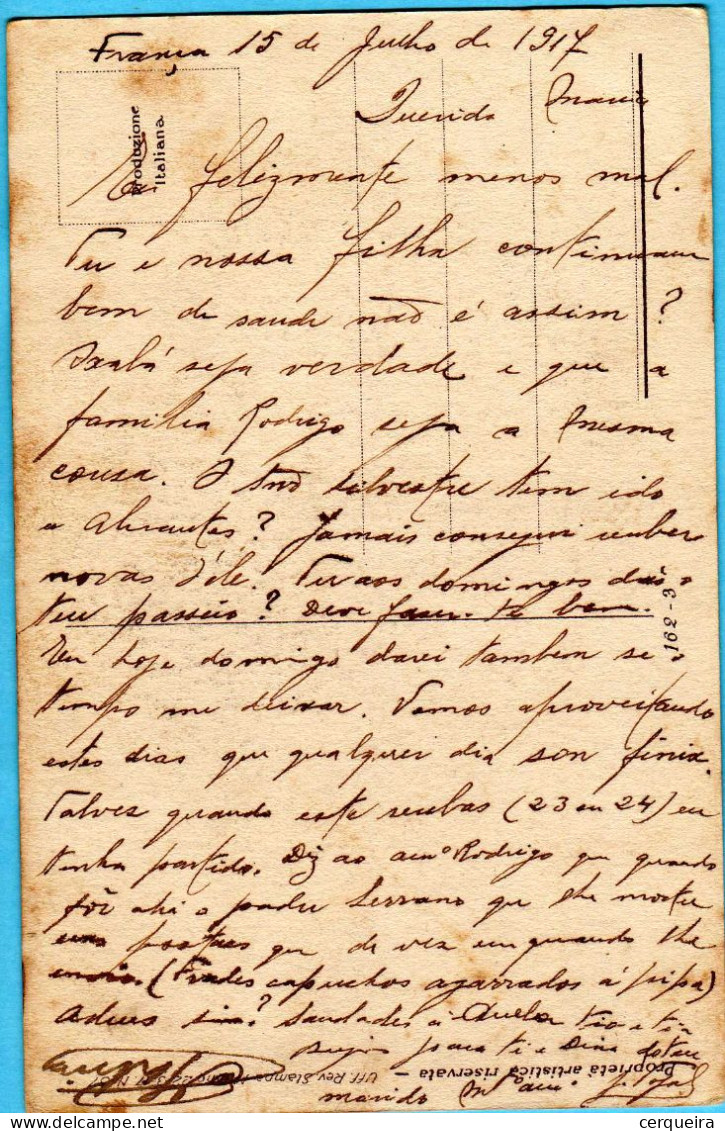 França 15 de Julho de 1917
Querida Maria
Eu felizmente menos mal.
Tu e nossa filha continuam
bem de saude não é assim?
Oxalá seja verdade e que a
familia Rodrigo seja a mesma
cousa. O Silvestre tem ido
a Abrantes? Jamais consegui receber
novas d'éle. Tu aos domingos dás o
teu passeio? Deve fazer-te bem.
Eu hoje domingo darei tambem se o
tempo me deixar. Vamos aproveitando
estes dias que qualquer dia son finix.
Talvez quando este recebas (23 ou 24) eu
tenha partido. Diz ao Rodrigo que quando
fôr ahi o padre Serrano que lhe mostre
uns postaes que de vez em quando lhe
envio. (Frades capuchos agarrados á pipa)
Adeus Saudades á tio e tia
para ti e Dina do teu
marido
Produzione
Italiana.
162-3
Proprietà artistica riservata –
Uff. Rev. Stampa
cerqueira